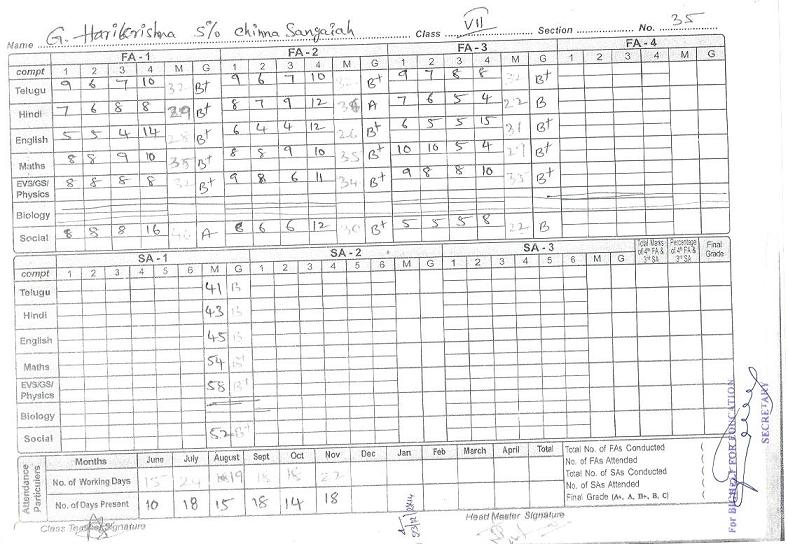 Name G. Harikrishna S/o Chinna Sangaiah Class VII Section No. 35
FA - 1 FA - 2 FA - 3 FA - 4
compt 1 2 3 4 M G 1 2 3 4 M G 1 2 3 4 M G 1 2 3 4 M G
Telugu 9 6 7 10 32 B+ 9 6 7 10 32 B+ 9 7 8 8 32 B+
Hindi 7 6 8 8 29 B+ 8 7 9 12 36 A 7 6 5 4 22 B
English 5 5 4 14 28 B+ 6 4 4 12 26 B+ 6 5 5 15 31 B+
Maths 8 8 9 10 35 B+ 8 8 9 10 35 B+ 10 10 5 4 29 B+
EVS/GS/ Physics 8 8 8 8 32 B+ 9 8 6 11 34 B+ 9 8 8 10 35 B+
Biology
Social 8 16 A 6 6 12 B+ 5 5 5 8 22 B
SA - 1 SA - 2 SA - 3 Total Marks of 4th FA & 3rd SA Percentage of 4th FA & 3rd SA Final Grade
compt 1 2 3 4 5 6 M G 1 2 3 4 5 6 M G 1 2 3 4 5 6 M G
Telugu 41 B
Hindi 43 B
English 45 B
Maths 54 B+
EVS/GS/ Physics 58 B+
Biology
Social 52 B+
Attendance Particulers
Months June July August Sept Oct Nov Dec Jan Feb March April Total
No. of Working Days 15 24 19 18 18 22
No. of Days Present 10 18 15 18 14 18
Total No. of FAs Conducted (
No. of FAs Attended (
Total No. of SAs Conducted (
No. of SAs Attended (
Final Grade (A+, A, B+, B, C) (
Class Teacher Signature
Head Mester Signature
For EDUCATION
SECRETARY